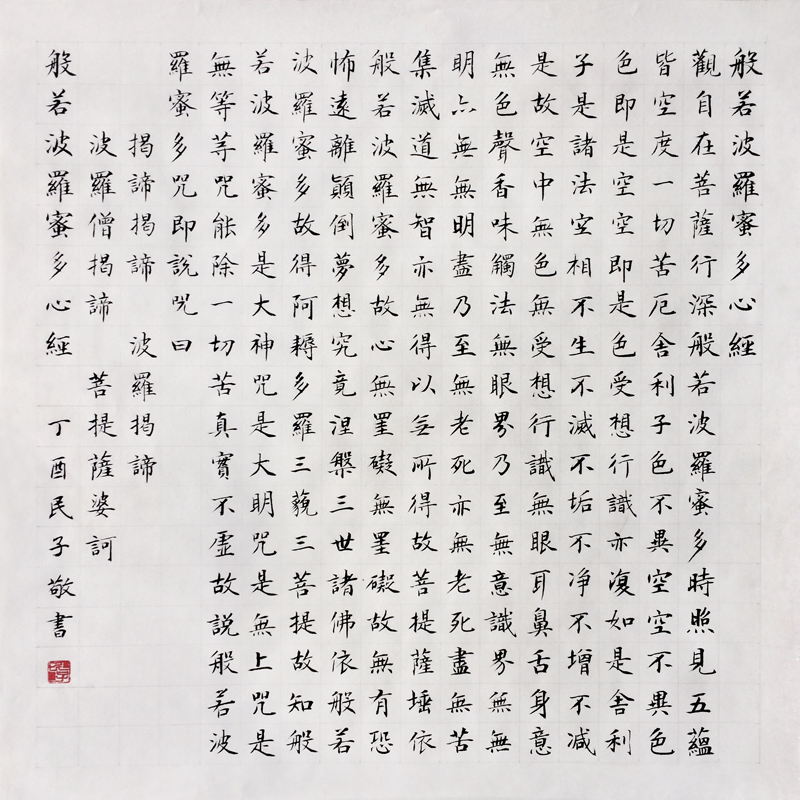 般若波羅蜜多心經
觀自在菩薩行深般若波羅蜜多時照見五蘊
皆空度一切苦厄舍利子色不異空空不異色
色即是空空即是色受想行識亦復如是舍利
子是諸法空相不生不滅不垢不净不增不减
是故空中無色無受想行識無眼耳鼻舌身意
無色聲香味觸法無眼界乃至無意識界無無
明亦無無明盡乃至無老死亦無老死盡無苦
集滅道無智亦無得以無所得故菩提薩埵依
般若波羅蜜多故心無罣礙無罣礙故無有恐
怖遠離顛倒夢想究竟涅槃三世諸佛依般若
波羅蜜多故得阿耨多羅三藐三菩提故知般
若波羅蜜多是大神咒是大明咒是無上咒是
無等等咒能除一切苦真實不虛故說般若波
羅蜜多咒即說咒曰
揭諦揭諦 波羅揭諦
波羅僧揭諦 菩提薩婆訶
般若波羅蜜多心經 丁酉民子敬書